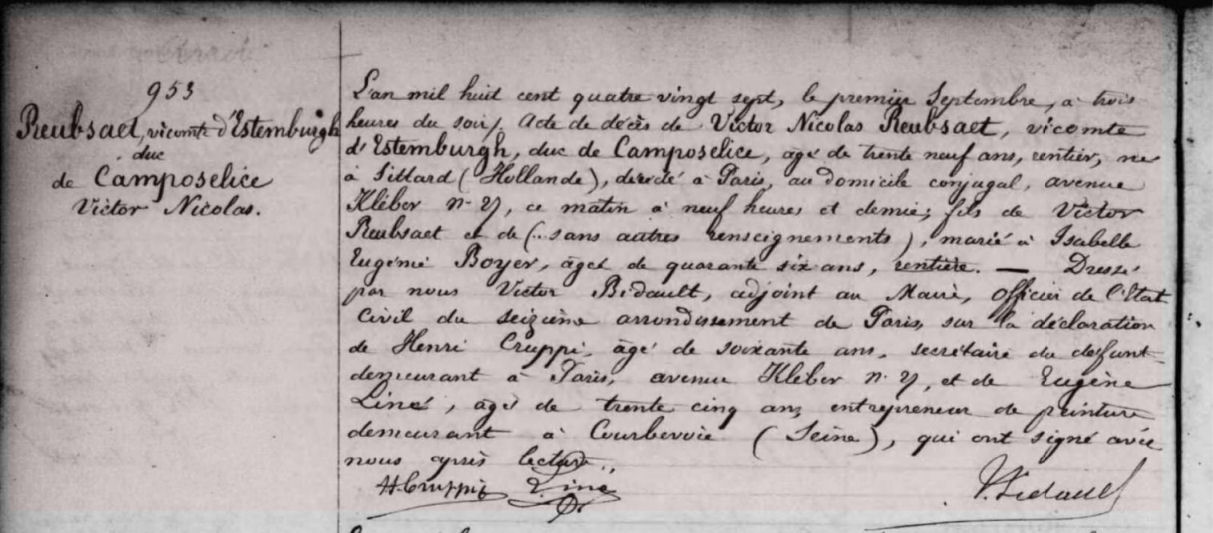 953
Reubsaet, vicomte d'Estemburgh
duc
de Camposelice
Victor Nicolas.
L'an mil huit cent quatre vingt sept, le premier Septembre, à trois
heures du soir, Acte de décès de Victor Nicolas Reubsaet, vicomte
d'Estemburgh, duc de Camposelice, âgé de trente neuf ans, rentier, né
à Sittard (Hollande), décédé à Paris, au domicile conjugal, avenue
Kléber n° 27, ce matin à neuf heures et demie; fils de Victor
Reubsaet et de (.. sans autres renseignements), marié à Isabelle
Eugénie Boyer, âgée de quarante six ans, rentière. — Dressé
par nous Victor Bidault, adjoint au Maire, officier de l'Etat
Civil du seizième arrondissement de Paris, sur la déclaration
de Henri Cruppi, âgé de soixante ans, secrétaire du défunt
demeurant à Paris, avenue Kléber n° 27, et de Eugène
Liné, âgé de trente cinq ans, entrepreneur de peinture
demeurant à Courbevoie (Seine), qui ont signé avec
nous après lecture.
H. Cruppi Liné V. Bidault